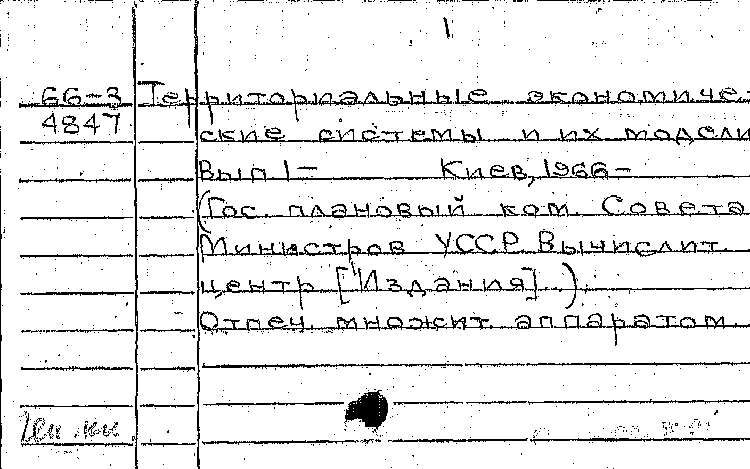 1
66-3 Территориальные экономиче-
4847 ские системы и их модели
Вып 1- Киев, 1966-
(Гос. плановый ком. Совета
Министров УССР. Вычислит.
центр [Издания]..).
Отпеч. множит. аппаратом